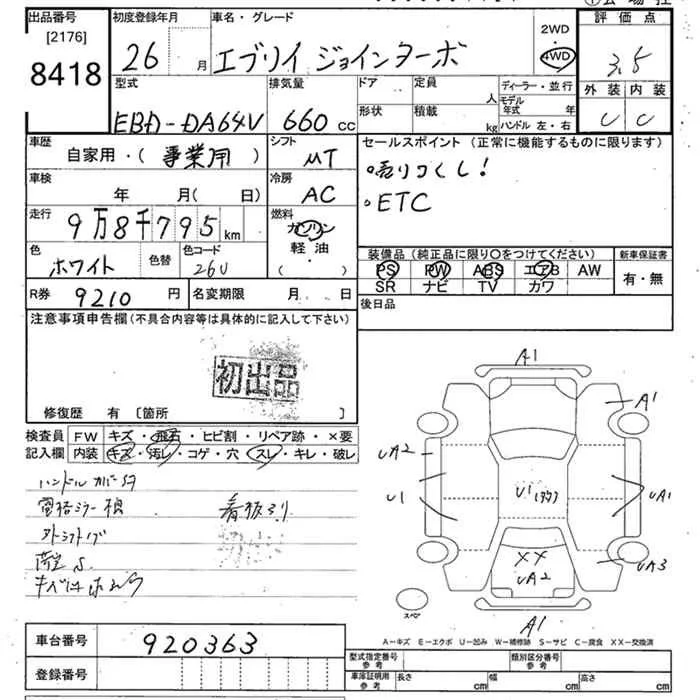 出品番号
[2176]
8418
初度登録年月
26 月
車名・グレード
エブリイ ジョインターボ
2WD
・
4WD
評価点
3.5
外装 内装
C C
型式
EBD-DA64V
排気量
660 cc
ドア
定員 人
形状
積載 kg
ディーラー・並行
モデル年式 年
ハンドル 左・右
車歴
自家用・(事業用)
シフト
MT
車検
年 月(日)
冷房
AC
走行
9万8千795 km
燃料
ガソリン
・
軽油
・
( )
色
ホワイト
色替
色コード
26U
R券 9210 円
名変期限 月 日
セールスポイント (正常に機能するものに限ります)
・売りつくし!
・ETC
装備品(純正品に限り〇をつけてください)
PS PW ABS エアB AW
SR ナビ TV カワ
新車保証書
有・無
後日品
注意事項申告欄(不具合内容等は具体的に記入して下さい)
初出品
修復歴 有 〔箇所 〕
検査員記入欄
FW キズ・飛石・ヒビ割・リペア跡・×要
内装 キズ・汚レ・コゲ・穴・スレ・キレ・破レ
ハンドルカバー
看板
A1
A1
UA2
U1
U1
UA1
XX
UA2
UA3
A1
スペア
A-キズ E-エクボ U-凹み W-補修跡 S-サビ C-腐食 XX-交換済
車台番号
920363
登録番号
型式指定番号
参考
類別区分番号
参考
車庫証明用
参考
長さ cm
幅 cm
高さ cm